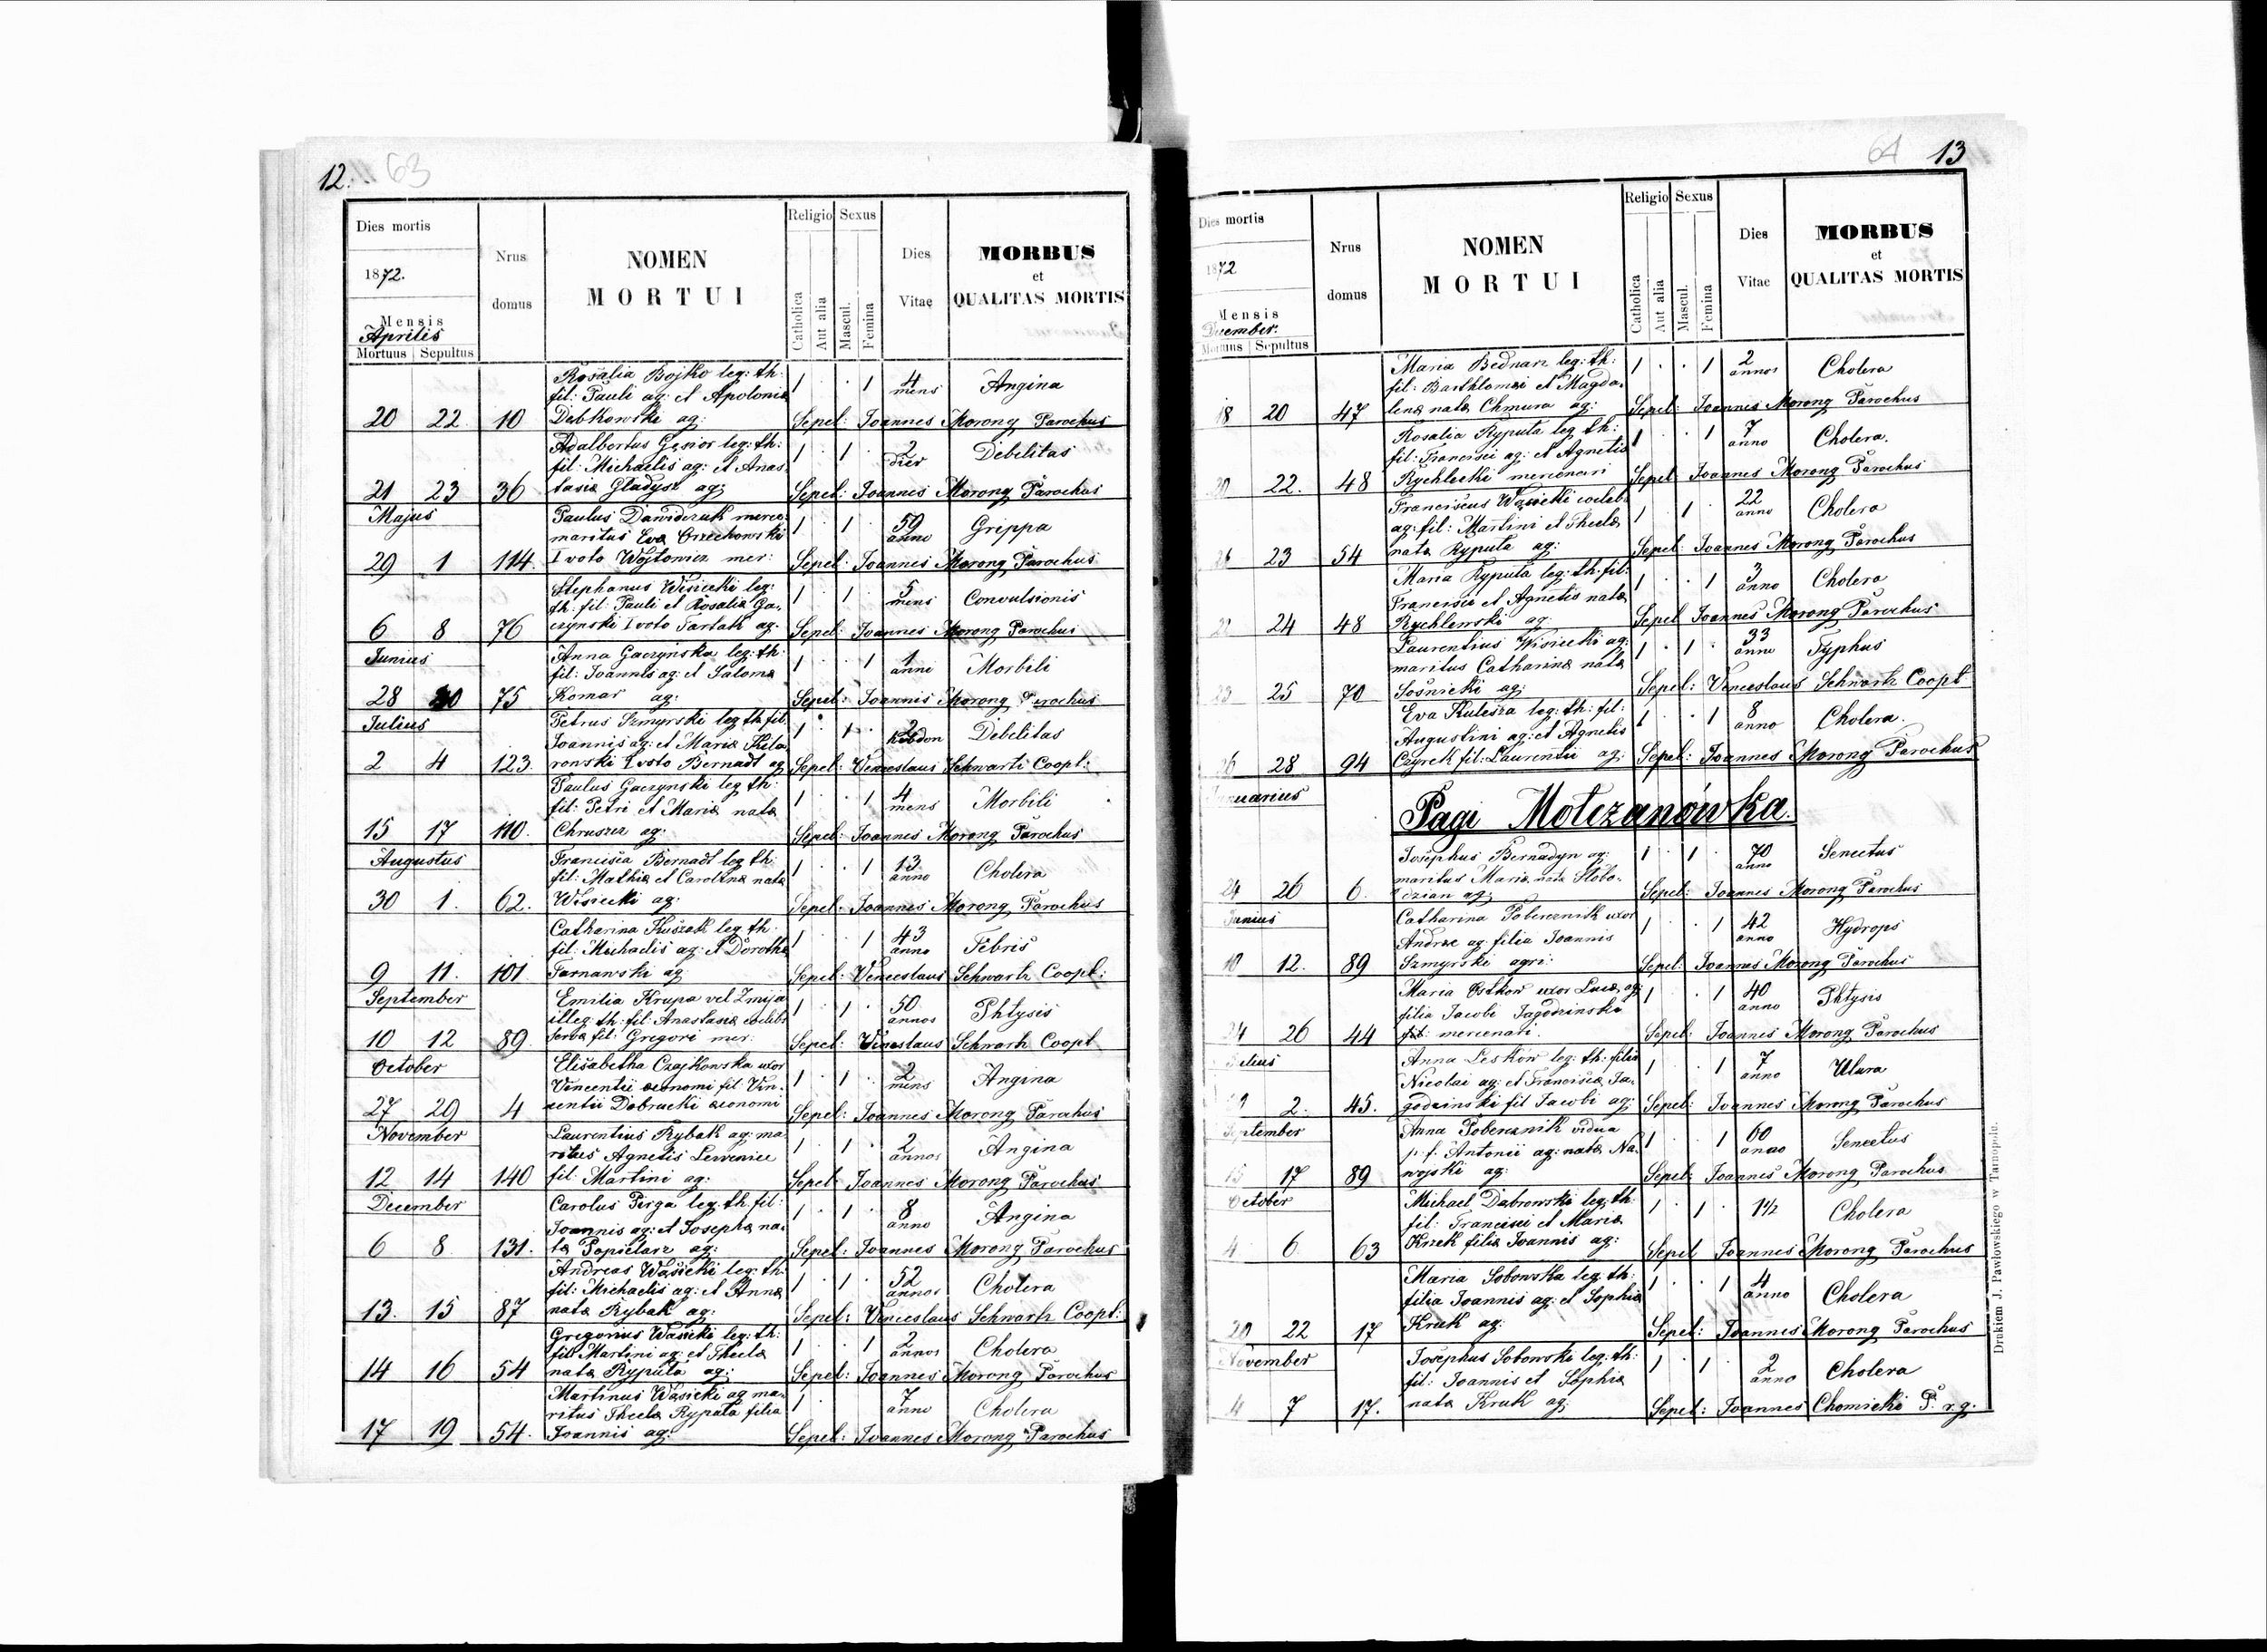 12. 63
Dies mortis
1872.
Mensis
Aprilis
Mortuus Sepultus
Nrus domus
NOMEN
MORTUI
Religio
Catholica
Aut alia
Sexus
Mascul.
Femina
Dies
Vitae
MORBUS
et
QUALITAS MORTIS
Rosalia Bojko leg: th: 1 · · 1 4 mens Angina
fil: Pauli ag: et Apolonia
20 22 10 Debkowski ag: Sepel: Joannes Morong Parochus
Adalbertus Gąsior leg: th: 1 · 1 · 2 dier Debilitas
fil: Michaelis ag: et Anas
21 23 36 tasia Gladysz ag: Sepel: Joannes Morong Parochus
Majus
Paulus Dawidczuk merce: 1 · 1 · 59 anno Grippa
maritus Eva Orzechowski
29 1 114. I voto Wojtowicz mer: Sepel: Joannes Morong Parochus
Stephanus Wisiecki leg: 1 · 1 · 5 mens Convulsionis
th: fil: Pauli et Rosalia Ga,
6 8 76 czynski I voto Tartak ag. Sepel: Joannes Morong Parochus
Junius
Anna Gaczyńska leg: th: 1 · · 1 1 anni Morbili
fil: Joannis ag: et Saloma
28 30 75 Komar ag: Sepel: Joannis Morong Parochus
Julius
Petrus Szmyrski leg th fil 1 · 1 · 2 hebdom Debilitas
Joannis ag: et Maria Kila
2 4 123. ronski I voto Bernadt ag Sepel: Venceslaus Schwartz Coopt:
Paulus Gaczynski leg th: 1 · · 1 4 mens Morbili
fil: Petri et Maria nata
15 17 110. Chruszcz ag: Sepel: Joannes Morong Parochus
Augustus
Francisca Bernadt leg th: 1 · · 1 13 anno Cholera
fil: Mathia et Carolina nata
30 1. 62. Wisiecki ag: Sepel: Joannes Morong Parochus
Catharina Kuszek leg th: 1 · · 1 43 anno Febris
fil: Michaelis ag: et Dorothea
9 11. 101. Tarnawski ag Sepel: Venceslaus Schwartz Coopt:
September
Emilia Krupa vel Zmija 1 · 1 · 50 annos Phtysis
illeg: th: fil: Anastasia coelebs
10 12 89 serva fil: Gregori mer: Sepel: Venceslaus Schwartz Coopt
October
Elisabetha Czajkowska uxor 1 · 1 · 2 mens Angina
Vincentii oeconomi fil: Vin,
27 29 4 centii Dobrucki oeconomi Sepel: Joannes Morong Parochus
November
Laurentius Rybak ag: ma 1 · 1 · 2 annos Angina
ritus Agnetis Lewenice
12 14 140 fil: Martini ag: Sepel: Joannes Morong Parochus
December
Carolus Pirga leg: th: fil: 1 · 1 · 8 anno Angina
Joannis ag: et Josepha na,
6 8 131. ta Popielarz ag: Sepel: Joannes Morong Parochus
Andreas Wąsicki leg: th: 1 · 1 · 52 annos Cholera
fil: Michaelis ag: et Anna
13. 15 87 nata Rybak ag: Sepel: Venceslaus Schwartz Coopt:
Gregorius Wąsicki leg: th: 1 · · 1 2 annos Cholera
fil: Martini ag: et Thecla
14 16 54 nata Ryputa ag: Sepel: Joannes Morong Parochus
Martinus Wąsicki ag ma, 1 · 7 anno Cholera
ritus Thecla Ryputa filia
17 19 54. Joannis ag: Sepel: Joannes Morong Parochus
64 13
Dies mortis
1872
Mensis
December.
Mortuus Sepultus
Nrus domus
NOMEN
MORTUI
Religio
Catholica
Aut alia
Sexus
Mascul.
Femina
Dies
Vitae
MORBUS
et
QUALITAS MORTIS
Maria Bednarz leg: th: 1 · · 1 2 annos Cholera
fil: Barthlomai et Magda,
18 20 47 lena nata Chmura ag: Sepel: Joannes Morong Parochus
Rosalia Ryputa leg th: 1 · · 1 7 anno Cholera.
fil: Francisci ag: et Agnetis
20 22. 48 Rychlecki mercenari Sepel Joannes Morong Parochus
Franciscus Wąsicki coeleb: 1 · 1 · 22 anno Cholera
ag: fil: Martini et Thecla
23 54 nata Ryputa ag: Sepel: Joannes Morong Parochus
Maria Ryputa leg: th: fil: 1 · · 1 3 anno Cholera
Francisci et Agnetis nata
22 24 48 Rychlewski ag: Sepel Joannes Morong Parochus
Laurentius Wisiecki ag: 1 · 1 · 33 anno Typhus
maritus Catharina nata
23 25 70 Sośnicki ag: Sepel: Venceslaus Schwartz Coopt
Eva Kulesza leg: th: fil: 1 · · 1 8 anno Cholera.
Augustini ag: et Agnetis
26 28 94 Czyrek fil: Laurentii ag: Sepel: Joannes Morong Parochus
Januarius
Pagi Mołczanówka.
Josephus Bernadyn ag: 1 · 1 · 70 anno Senectus
maritus Maria nata Slobo,
24 26 6. dzian ag: Sepel: Joannes Morong Parochus
Junius
Catharina Pobereznik uxor 1 · · 1 42 anno Hydrops
Andreæ ag: filia Joannis
10 12. 89 Szmyrski agri: Sepel: Joannes Morong Parochus
Maria Ostkow uxor Luca ag: 1 · · 1 40 anno Phtysis
filia Jacobi Jagodzinski
24 26 44 mercenari. Sepel: Joannes Morong Parochus
Julius
Anna Leskow leg: th: filia 1 · · 1 7 anno Ulura
Nicolai ag: et Francisca Ja,
2. 45. godzinski fil Jacobi ag: Sepel: Joannes Morong Parochus
September
Anna Pobereznik vidua 1 · · 1 60 anno Senectus
p. f. Antonii ag: nata Na,
15 17 89 wojski ag: Sepel: Joannes Morong Parochus
October
Michael Dabrowski leg: th: 1 · 1 · 1½ Cholera
fil: Francisci et Maria
4 6. 63 Kruk filia Joannis ag: Sepel Joannes Morong Parochus
Maria Sobowska leg th: 1 · · 1 4 anno Cholera
filia Joannis ag: et Sophia
20 22 17 Kruk ag: Sepel: Joannes Morong Parochus
November
Josephus Sobowski leg: th: 1 · 1 · 2 anno Cholera
fil: Joannis et Sophia
4 7 17. nata Kruk ag: Sepel: Joannes Chomicki P. r. g.
Drukiem J. Pawłowskiego w Tarnopolu.